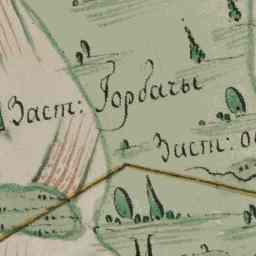 Заст: Горбачы
Заст: